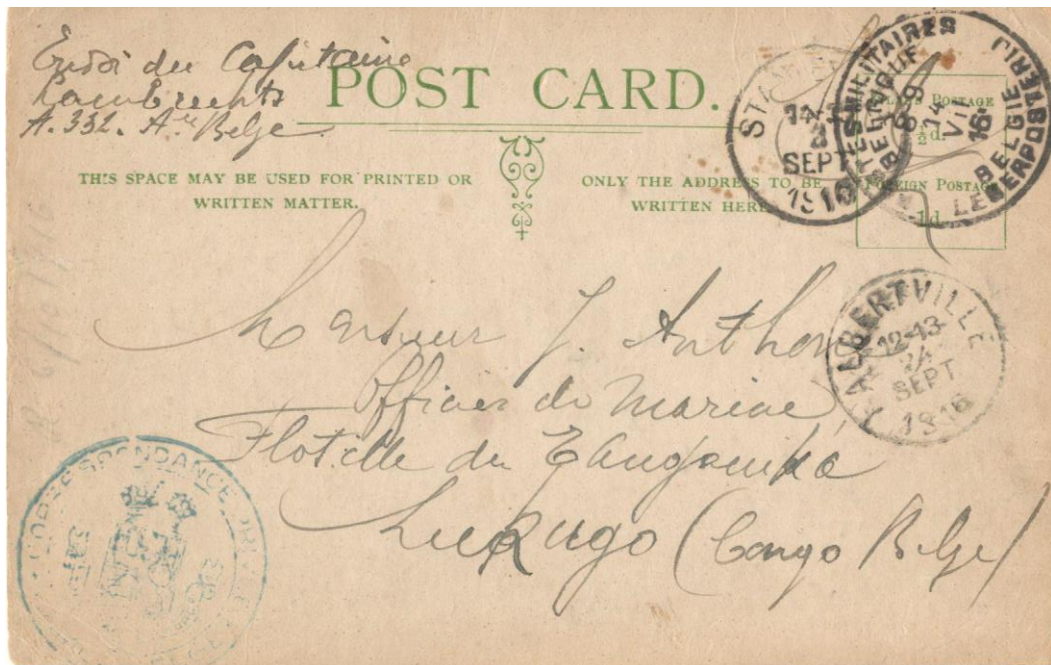 Envoi du Capitaine
Lambrechts
A. 332. A^ée Belge
POST CARD.
THIS SPACE MAY BE USED FOR PRINTED OR
WRITTEN MATTER.
ONLY THE ADDRESS TO BE
WRITTEN HERE
POSTAGE
½d.
FOREIGN POSTAGE
1d.
SEPT
1916
POSTES MILITAIRES
BELGIQUE
14
VII
16
BELGIE
LEGERPOSTERIJ
ALBERTVILLE
12-13
24
SEPT
1916
Monsieur J. Anthon
Officier de Marine
Flotille du Tanganika
Lukugo (Congo Belge)
CORRESPONDANCE